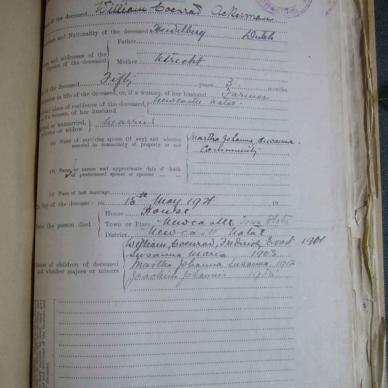 of the deceased William Coenrad Ackerman
and Nationality of the deceased Heidelberg Dutch
Father
and addresses of the
of the deceased Mother Utrecht
of the deceased Fifty years 3 months
in life of the deceased, or, if a woman, of her husband Farmer
place of residence of the deceased, Newcastle Natal
if a woman, of her husband
or unmarried, Married
or widow
(a) Name of surviving spouse (if any) and whether Martha Johanna Susanna
married in community of property or not Community
(b) Name or names and approximate date of death
of predeceased spouse or spouses
(c) Place of last marriage
day of the decease: on 15th May 1921 19
House House
the person died Town or Place Newcastle Town
District Newcastle Natal
William Coenrad, Frederick 1901
Names of children of deceased Susanna Maria 1903
and whether majors or minors Martha Johanna Susanna 1912
Joachim Johannes